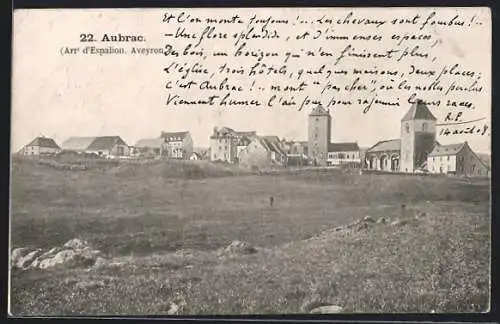 22. Aubrac.
(Arrt d'Espalion. Aveyron
Et l'on monte toujours !.. Les chevaux sont fourbus !..
Une flore splendide, et d'immenses espaces,
Des bois, un horizon qui n'en finissent plus,
L'église, trois hôtels, quelques maisons, deux places ;
C'est Aubrac !.. on monte "pas cher", où les nobles perclus
Viennent humer l'air pur pour rajeunir leurs races.
R.P.
14 août 08